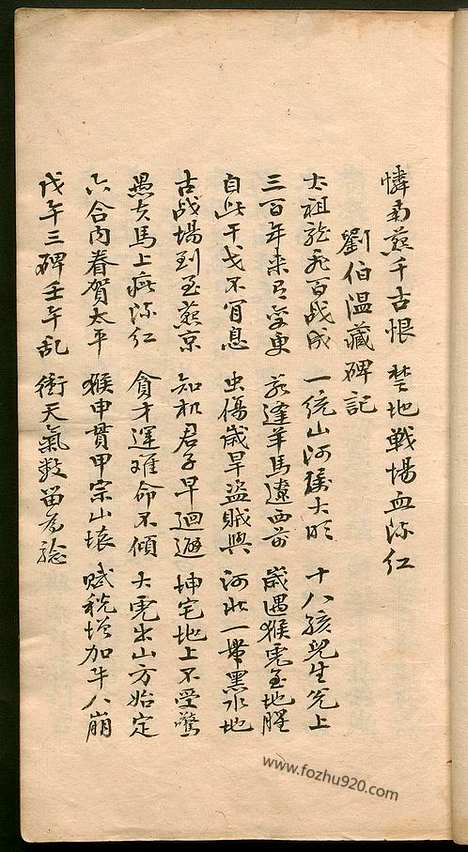 憐南燕千古恨 楚地戰場血流紅
劉伯温藏碑記
太祖龍飛百战成 一統山河属大明 十八孩兒生兊上
三百年来有变更 若逢羊馬遼西前 歲遇猴兎金地腥
自此干戈不肯息 虫傷歲旱盗賊興 河北一帶黑水地
古战場到至燕京 知机君子早廻避 坤宅地上不受驚
愚夫馬上疵流红 貪才運难命不傾 大兎出山方始定
六合内眷賀太平 猴申貫甲宗山壊 賦税增加牛八崩
戊午三碑壬午乱 衝天氣数畄為驗
www.fozhu920.com